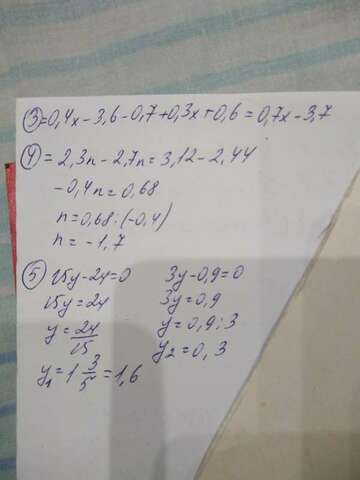 ③=0,4x-3,6-0,7+0,3x+0,6=0,7x-3,7
④=2,3n-2,7n=3,12-2,44
-0,4n=0,68
n=0,68:(-0,4)
n=-1,7
⑤ 15y-24=0 3y-0,9=0
15y=24 3y=0,9
y=24/15 y=0,9:3
y₂=0,3
y₁=1 3/5=1,6